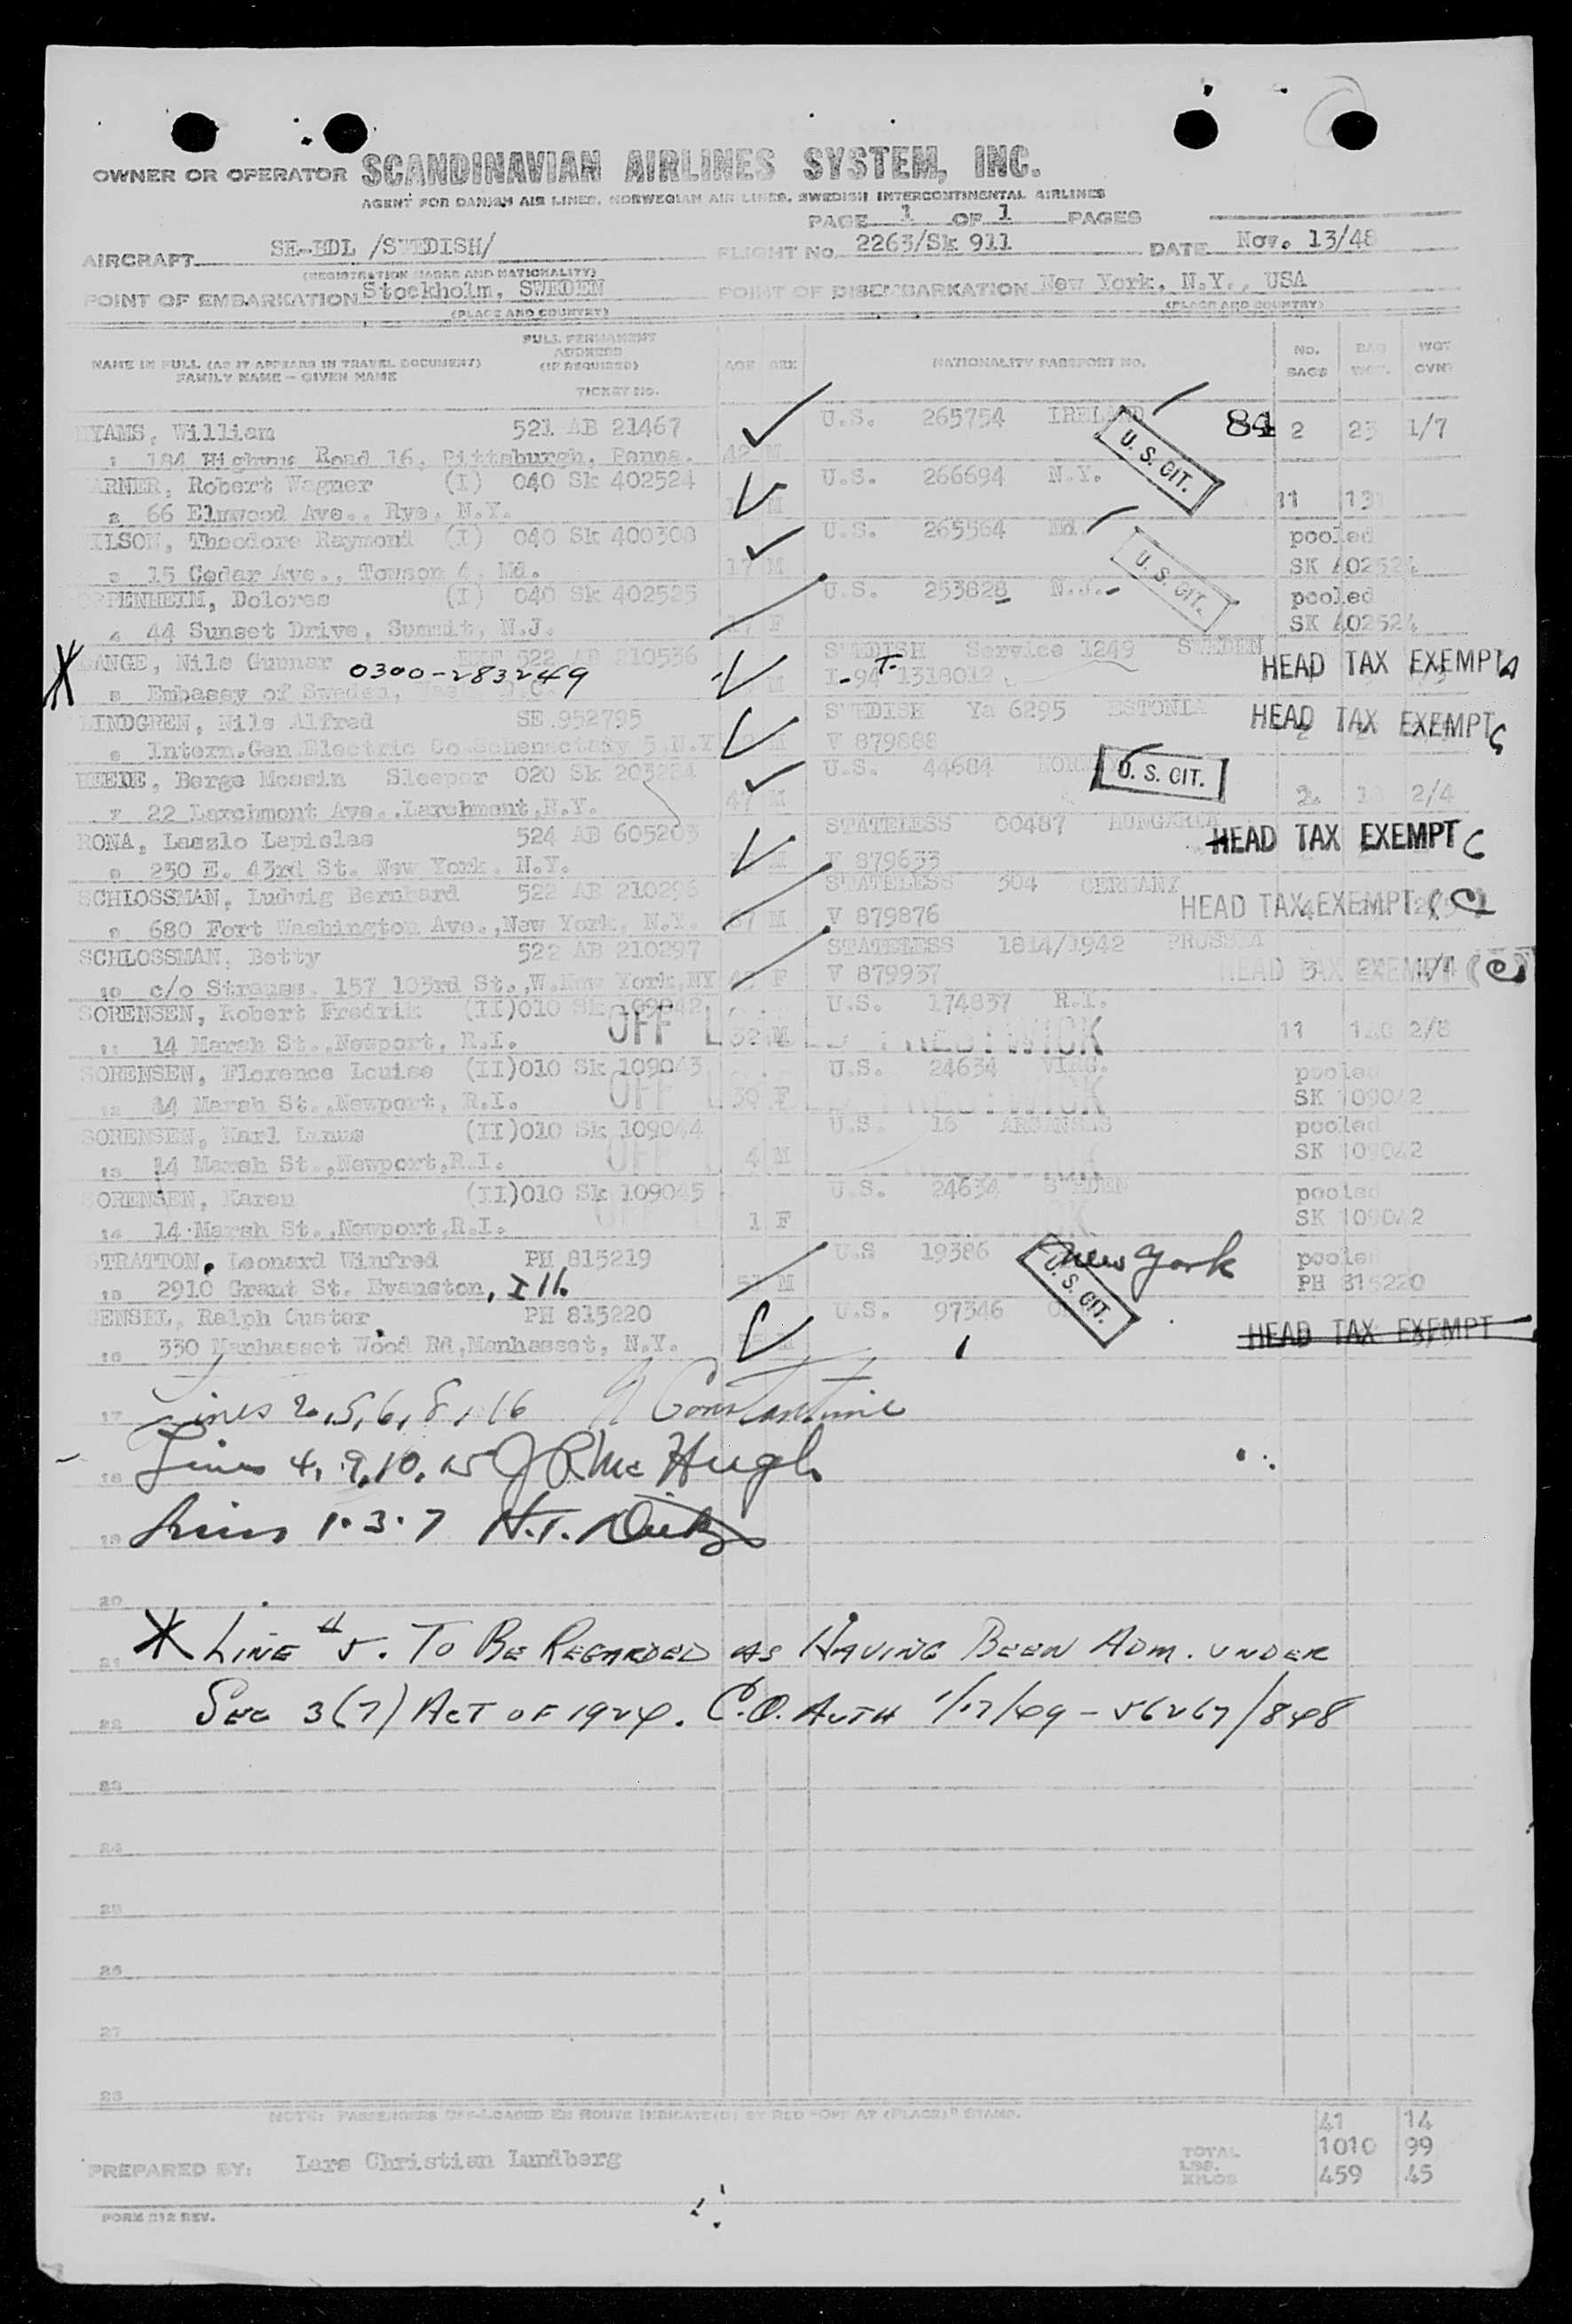 OWNER OR OPERATOR SCANDINAVIAN AIRLINES SYSTEM, INC.
AGENT FOR DANISH AIR LINES, NORWEGIAN AIR LINES, SWEDISH INTERCONTINENTAL AIRLINES
PAGE 1 OF 1 PAGES
AIRCRAFT SE-BDL /SWEDISH/ FLIGHT No. 2263/Sk 911 DATE Nov. 13/48
(REGISTRATION MARKS AND NATIONALITY)
POINT OF EMBARKATION Stockholm, SWEDEN POINT OF DISEMBARKATION New York, N.Y., USA
(PLACE AND COUNTRY) (PLACE AND COUNTRY)
NAME IN FULL (AS IT APPEARS IN TRAVEL DOCUMENT) FAMILY NAME - GIVEN NAME
FULL PERMANENT ADDRESS (IF REQUIRED) TICKET NO.
AGE SEX NATIONALITY PASSPORT NO. NO. BAGS BAG WGT. WGT OVNT
YAMS, William 521 AB 21467 U.S. 265754 IRELAND 84 2 23 1/7
1 184 Road 16, Pittsburgh, Penna. 42 M U. S. CIT.
ARNER, Robert Wagner (I) 040 Sk 402524 U.S. 266694 N.Y.
2 66 Elmwood Ave., Rye, N.Y. M 11 13
ILSON, Theodore Raymond (I) 040 Sk 400308 U.S. 265564 Md. pooled
3 15 Cedar Ave., Towson 4, Md. 17 M U. S. CIT. SK 402524
PPENHEIM, Dolores (I) 040 Sk 402525 U.S. 253828 N.J. pooled
4 44 Sunset Drive, Summit, N.J. F SK 402524
ANGE, Nils Gunnar 522 AB 210536 SWEDISH Service 1249 SWEDEN
5 Embassy of Sweden, 0300-283249 M I-94 T-1318012 HEAD TAX EXEMPT
LINDGREN, Nils Alfred SE 952795 SWEDISH Ya 6295 ESTONIA
6 Intern.Gen.Electric Co.Schenectady 5.N.Y M V 879888 HEAD TAX EXEMPT C
HEEDE, Berge Mossin Sleeper 020 Sk 203284 U.S. 44684 NORWAY U. S. CIT.
7 22 Larchmont Ave.,Larchmont,N.Y. 47 M 2 2/4
RONA, Laszlo Lapislas 524 AB 605203 STATELESS 00487 HUNGARIA
8 230 E. 43rd St. New York, N.Y. M V 879633 HEAD TAX EXEMPT C
SCHLOSSMAN, Ludwig Bernhard 522 AB 210296 STATELESS 304 GERMANY
9 680 Fort Washington Ave.,New York, N.Y. 67 M V 879876 HEAD TAX EXEMPT (C)
SCHLOSSMAN, Betty 522 AB 210297 STATELESS 1814/1942 PRUSSIA
10 c/o Strauss. 157 103rd St.,W.New York,NY F V 879937 HEAD TAX EXEMPT (C)
SORENSEN, Robert Fredrik (II)010 Sk 109042 U.S. 174837 R.I.
11 14 Marsh St.,Newport, R.I. 32 M OFF L PRESTWICK 11 2/8
SORENSEN, Florence Louise (II)010 Sk 109043 U.S. 24634 VIRG. pooled
12 14 Marsh St.,Newport, R.I. 30 F OFF L PRESTWICK SK 109042
SORENSEN, Karl (II)010 Sk 109044 U.S. 16 ARCANSAS pooled
13 14 Marsh St.,Newport,R.I. 4 M OFF L SK 109042
ORENSEN, Karen (II)010 Sk 109045 U.S. 24634 SWEDEN pooled
14 14 Marsh St.,Newport,R.I. 1 F SK 109042
STRATTON, Leonard Winfred PH 815219 U.S 19386 New York pooled
15 2910 Grant St. Evanston, Ill. M U. S. CIT. PH 815220
GENSEL, Ralph Custer PH 815220 U.S. 97346
16 330 Manhasset Wood Rd,Manhasset, N.Y. M HEAD TAX EXEMPT
17 Lines 2,5,6,8,16 Constantine
18 Lines 4,9,10,15 J R Mc Hugh
19 Lines 1.3.7 H.T.
20
21 * LINE #5. TO BE REGARDED AS HAVING BEEN ADM. UNDER
22 SEC 3(7) ACT OF 1924. C.O. AUTH 1/17/49 - 56267/848
23
24
25
26
27
28
NOTE: PASSENGERS OFF-LOADED EN ROUTE INDICATE(D) BY RED "OFF AT (PLACE)" STAMP.
41 14
TOTAL LBS. 1010 99
KILOS 459 45
PREPARED BY: Lars Christian Lundberg
FORM 212 REV.